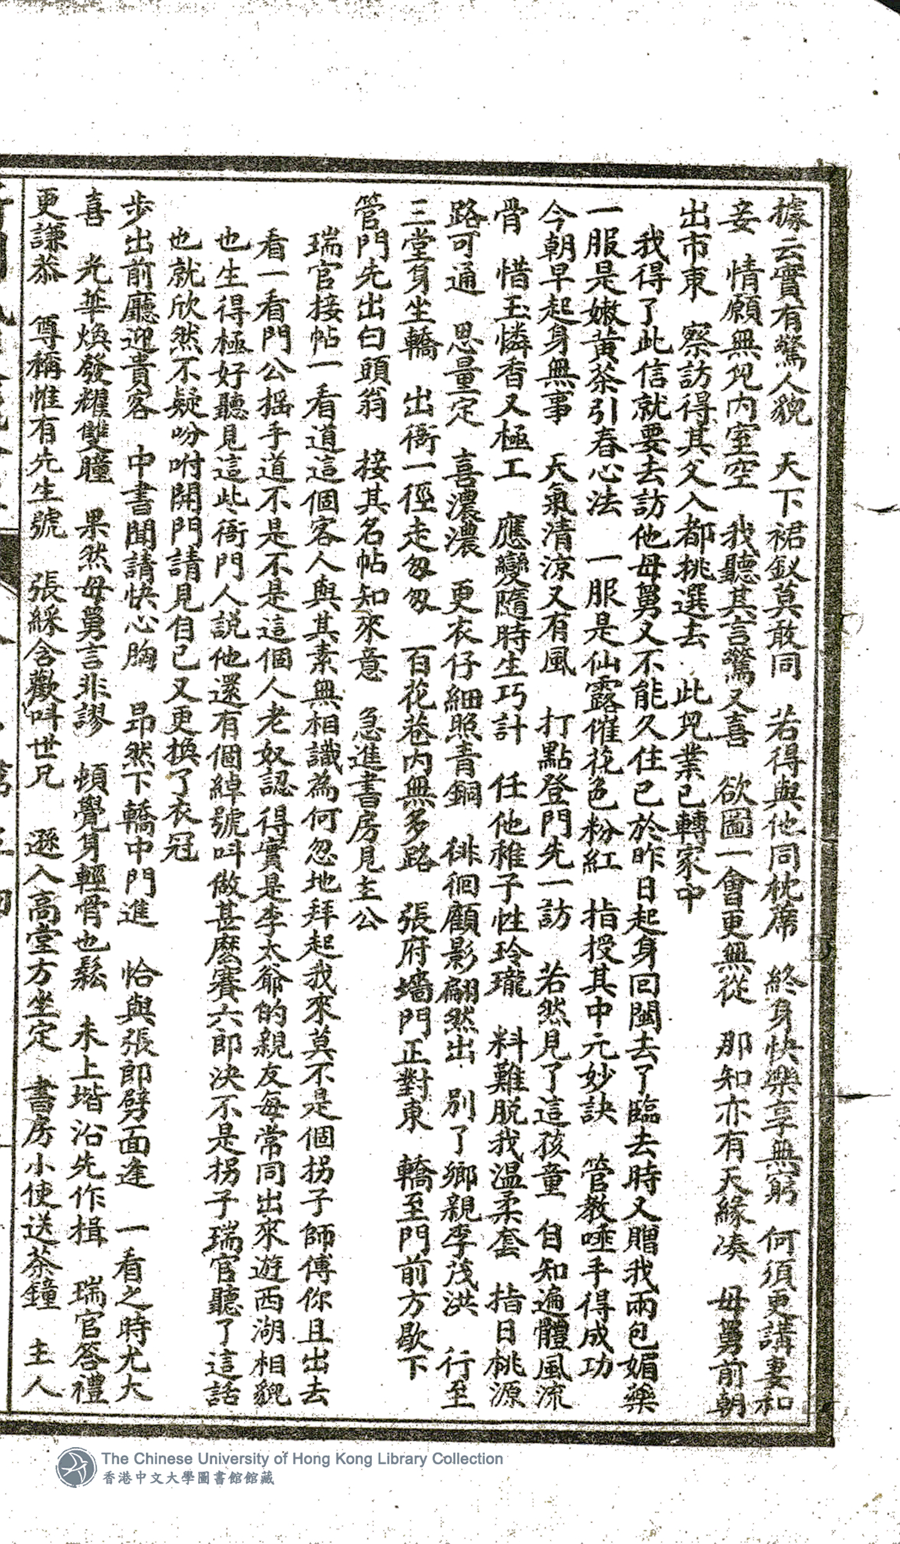 據云實有驚人貌 天下裙釵莫敢同 若得與他同枕席 終身快樂享無窮 何須更講妻和
妾 情願無兒內室空 我聽其言驚又喜 欲圖一會更無從 那知亦有天緣凑 母舅前朝
出市東 察訪得其父入都挑選去 此兒業已轉家中
我得了此信就要去訪他母舅又不能久住已於昨日起身回閩去了臨去時又贈我兩包媚藥
一服是嫩黃茶引春心法 一服是仙露催花色粉紅 指授其中元妙訣 管教唾手得成功
今朝早起身無事 天氣清涼又有風 打點登門先一訪 若然見了這孩童 自知遍體風流
骨 惜玉憐香又極工 應變隨時生巧計 任他稚子性玲瓏 料難脫我溫柔套 指日桃源
路可通 思量定 喜濃濃 更衣仔細照青銅 徘徊顧影翩然出 別了鄉親李茂洪 行至
三堂身坐轎 出衙一徑走匆匆 百花巷內無多路 張府墻門正對東 轎至門前方歇下
管門先出白頭翁 接其名帖知來意 急進書房見主公
瑞官接帖一看道這個客人與其素無相識為何忽地拜起我來莫不是個拐子師傅你且出去
看一看門公搖手道不是不是這個人老奴認得實是李太爺的親友每常同出來遊西湖相貌
也生得極好聽見這些衙門人説他還有個綽號呌做甚麼賽六郎決不是拐子瑞官聽了這話
也就欣然不疑吩咐開門請見自己又更換了衣冠
步出前廳迎貴客 中書聞請快心胸 昂然下轎中門進 恰與張郎劈面逢 一看之時尤大
喜 光華煥發耀雙瞳 果然母舅言非謬 頓覺身輕骨也鬆 未上堦沿先作揖 瑞官答禮
更謙恭 尊稱惟有先生號 張綵含歡呌世兄 遜入高堂方坐定 書房小使送茶鐘 主人
The Chinese University of Hong Kong Library Collection
香港中文大學圖書館館藏